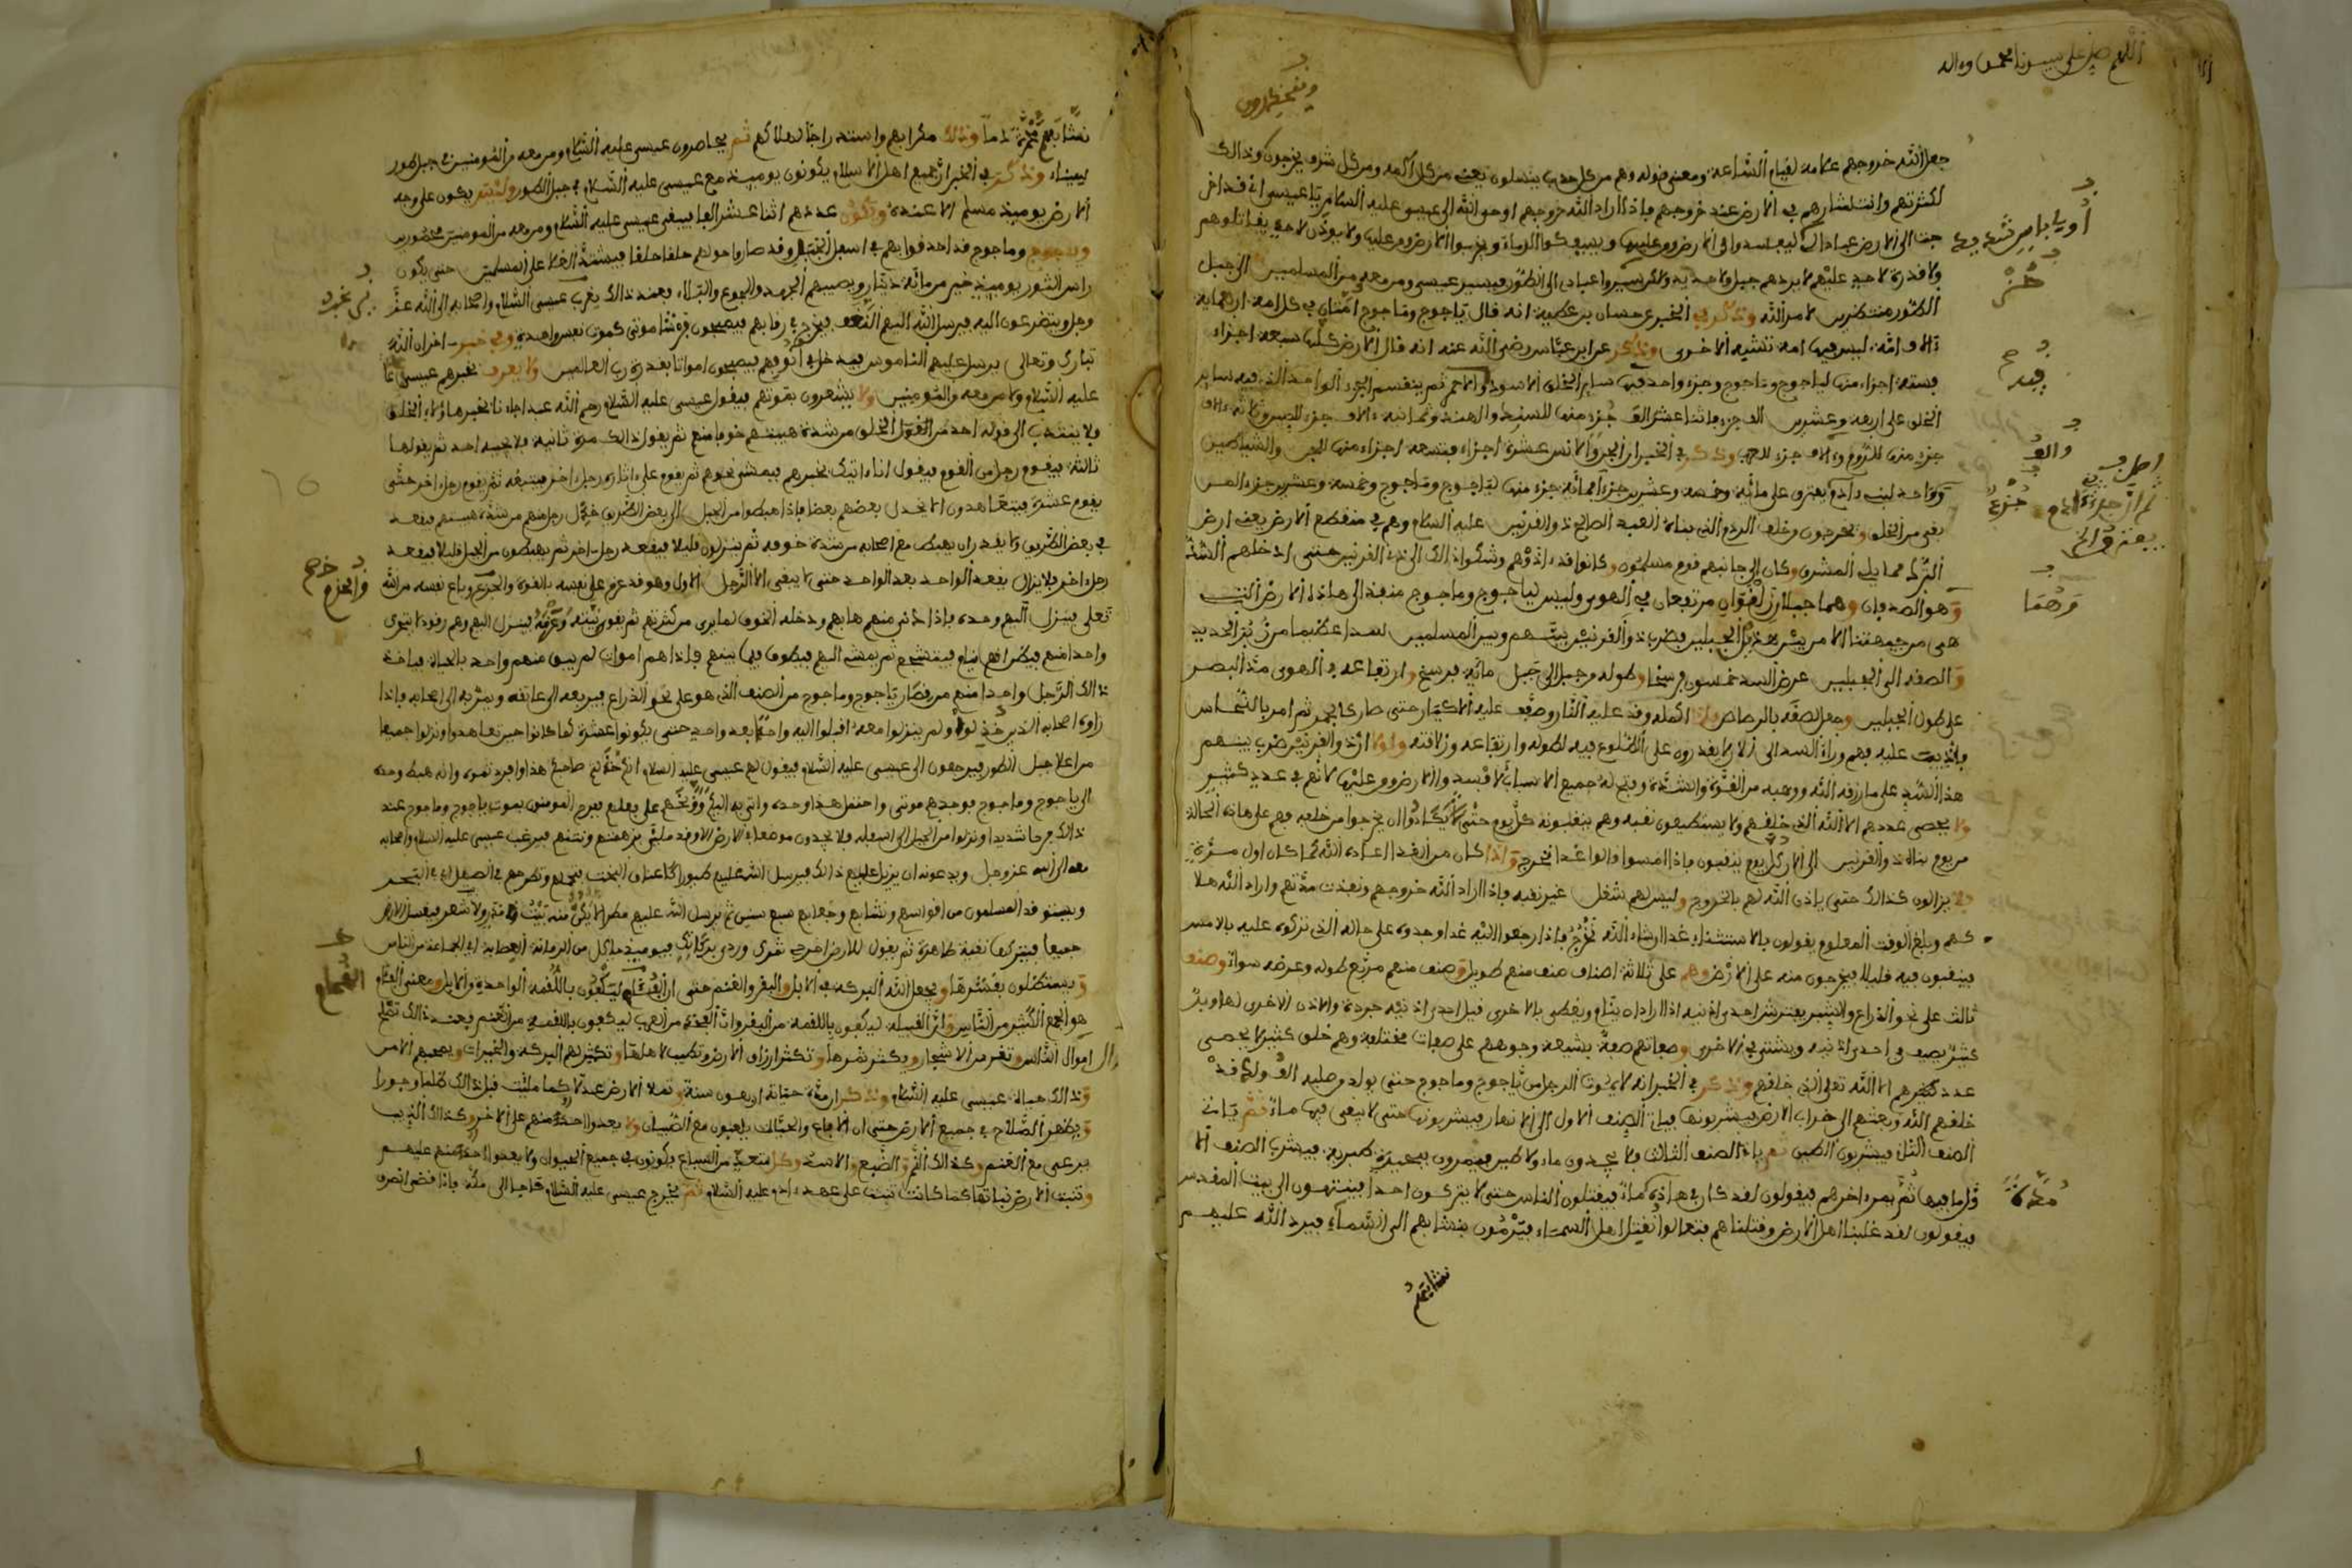 اللهم صل على سيدنا محمد وءاله
جعل الله خروجهم علامة لقيام الساعة ومعنى قوله وهم من كل حدب ينسلون يعني من كل اكمة ومن كل شرف يخرجون وذالك
لكثرتهم وانتشارهم في الارض عند خروجهم فإذا اراد الله خروجهم اوحى الله الى عيسى عليه السلام يا عيسى اني قد اخر
جت الى الارض عبادا لي ليفسدوا في الارض ومن عليها ويسفكوا الدماء ويخربوا الارض ومن عليها ولا يوذن لاحد يقاتلوهم
ولا قدرة لاحد عليهم لا يردهم جبل ولا حديد ولاكن سير عبادي الى الطور فيسير عيسى ومن معه من المسلمين الى جبل
الطور منتظرين لامر الله وذكر في الخبر عن حسان بن عطية انه قال ياجوج وماجوج امتان في كل امة اربعماية
ءالاف امة ليس فيها امة تشبه الاخرى وذكر عن ابن عباس رضي الله عنه انه قال الارض كلها سبعة اجزاء
فستة اجزاء منها لياجوج وماجوج وجزء واحد فيها ساير الخلق الاسود والاحمر ثم ينقسم الجزء الواحد الذي فيه ساير
الخلق على اربعة وعشرين الف جزء فاثنا عشر الف جزء منها للسند والهند وثمانية ءالاف جزء للصين وثلاثة ءالاف
جزء منها للروم والف جزء للعرب وذكر في الخبر ان الجن والانس عشرة اجزاء فتسعة اجزاء منها الجن والشياطين
وواحد لبني ءادم يفترق على مائة وخمسة وعشرين جزءا فمائة جزء منها لياجوج وماجوج وخمسة وعشرين جزءا لمن
بقي من الخلق ويخرجون وخلف الردم الذي بناه العبد الصالح ذو القرنين عليه السلام وهم في منقطع الارض يعني ارض
الترك مما يلي المشرق وكان الى جانبهم قوم مسلمون وكانوا قد اذوهم وشكوا ذالك الى ذي القرنين حتى ادخلهم السد
وهو الصدفان وهما جبلان مرتفعان في الهوى وليس لياجوج وماجوج منفذ الى هاذه الارض التي
هي من جهتنا الا من بين هذين الجبلين فضرب ذو القرنين بينهم وبين المسلمين لسدا عظيما من زبر الحديد
والصفه الى الجبلين عرض السد خمسون فرسخا وطوله من جبل الى جبل مائة فرسخ وارتفاعه في الهوى مد البصر
على طول الجبلين وجعل الصفه بالرصاص فلما اكمله وقد عليه النار وضع عليه الاكيار حتى صار كالجمر ثم امر بالنحاس
فاذيب عليه فهم وراء السد الى الان لا يقدرون على الطلوع فيه لطوله وارتفاعه وزلاقته ولولا ان ذو القرنين ضرب بينهم
هذا السد على ما رزقه الله ووهبه من القوة والشدة وفتح له جميع الاسباب لافسدوا الارض ومن عليها لانهم في عدد كثير
ولا يحصى عددهم الا الله الذي خلقهم ولا يستطيعون نقبه وهم ينقبونه كل يوم حتى يكادوا ان يخرجوا من خلفه فهم على هاذه الحالة
من يوم بناه ذو القرنين الى الان كل يوم ينقبون فإذا امسوا قالوا غدا نخرج واذا كان من الغد اعاده الله كما كان اول مرة
فلا يزالون كذالك حتى ياذن الله لهم بالخروج وليس لهم شغل غير نقبه فإذا اراد الله خروجهم ونفذت مدتهم واراد الله هلا
كهم وبلغ الوقت المعلوم يقولون بالاستثناء غدا ان شاء الله نخرج فإذا رجعوا اليه غدا وجدوه على حاله الذي تركوه عليه بالامس
فينقبون فيه قليلا فيخرجون منه على الارض وهم على ثلاثة اصناف صنف منهم طويل وصنف منهم مربع طوله وعرضه سواء وصنف
ثالث على نحو الذراع والشبر يفترش احدى اذنيه اذا اراد ان ينام ويغطى بالاخرى قيل احدى اذنيه جردة والاذن الاخرى لها وبر
كثير يصيف في احدى اذنيه ويشتي في الاخرى وصفاتهم صفة بشيعة وجوههم على صفات مختلفة وهم خلق كثير لا يحصي
عدد كثرهم الا الله تعالى الذي خلقهم وذكر في الخبر انه لا يموت الرجل من ياجوج وماجوج حتى يولد من صلبه الف ولد قد
خلقهم الله وبعثهم الى خراب الارض فيشربونها فياتي الصنف الاول الى الانهار فيشربونها حتى لا يبقى فيها ماء ثم ياتي
الصنف الثاني فيشربون الطين ثم ياتي الصنف الثالث فلا يجدون ماء ولا طين فيمرون ببحيرة طبرية فيشرب الصنف الا
ول ما فيها ثم يمر اخرهم فيقولون لقد كان في هاذه ماء فيقتلون الناس حتى لا يتركون احدا فينتهون الى بيت المقدس
فيقولون لقد غلبنا اهل الارض وقتلناهم فتعالوا نقتل اهل السماء فيرمون بنشابهم الى السماء فيرد الله عليهم
نشابهم
نشابهم محمرة دما وذلك مكرا بهم واستدراجا لهلاكهم ثم يحاصرون عيسى عليه السلام ومن معه من المومنين في جبل طور
سيناء وذكر في الخبر ان جميع اهل الاسلام يكونون يوميذ مع عيسى عليه السلام في جبل الطور وليس يكون على وجه
الارض يوميذ مسلم الا عنده ويكون عددهم اثنا عشر الفا فيبقى عيسى عليه السلام ومن معه من المومنين محضورين
وياجوج وماجوج قد احدقوا بهم في اسفل الجبل وقد صاروا حولهم حلقا حلقا فيشتد الغلاء على المسلمين حتى يكون
راس الثور يوميذ خير من مائة دينار ويصيبهم الجهد والجوع والبلاء فعند ذالك يغرب عيسى السلام واصحابه الى الله عز
وجل ويتضرعون اليه فيرسل الله اليهم النغف فيخرج في رقابهم فيصبحون فرشا موتى كموت نفس واحدة وفي خبر اخر ان الله
تبارك وتعالى يرسل عليهم الناموس فيدخل في انوفهم فيصبحون امواتا بقدرة رب العالمين ولا يعرف بخبرهم عيسى
عليه السلام ولا من معه من المومنين ولا يشعرون بموتهم فيقول عيسى عليه السلام رحم الله عبدا جاءنا بخبر هاؤلاء الخلق
فلا ينتدب الى قوله احد من القوم الخلق من شدة هيبتهم خوفا منهم ثم يقول ذالك مرة ثانية فلا يجيبه احد ثم يقولها
ثالثة فيقوم رجل من القوم فيقول انا ءاتيك بخبرهم فيمشي نحوهم ثم يقوم على اثاره رجل اخر فيتبعه ثم يقوم رجل اخر حتى
يقوم عشرة فيتعاهدون الا يخذل بعضهم بعضا فإذا هبطوا من الجبل الى بعض الطريق خذل رجل منهم من شدة هيبتهم فيقعد
في بعض الطريق ولا يقدر ان يهبط مع اصحابه من شدة خوفه ثم ينزلون قليلا فيقعد رجل اخر ثم يهبطون من الجبل قليلا فيقعد
رجل اخر فلا يزال يقعد الواحد بعد الواحد حتى لا يبقى الا الرجل الاول وهو قد عزم على نفسه بالقوة والجزع وباع نفسه من الله
تعلى فينزل اليهم وحده فإذا دنى منهم هابهم ودخله الخوف لما يرى من كثرتهم ثم يقوى نيته وعزمه فينزل اليهم وهم رقود لا يتحرك
واحد منهم فيظن انهم نيام فيتشجع ثم يمشي اليهم فيطوف فيما بينهم فإذا هم اموات لم يبق منهم واحد بالحياة فياخذ
ذالك الرجل واحدا منهم من قصار ياجوج وماجوج من الصنف الذي هو على نحو الذراع فيرفعه الى عاتقه ويمر به الى اصحابه فإذا
راوه اصحابه الذين خذلوه ولم ينزلوا معه اقبلوا اليه واحدا بعد واحد حتى يكونوا عشرة كما كانوا حين تعاهدوا ونزلوا جميعا
من اعلا جبل الطور فيرجعون الى عيسى عليه السلام فيقول لهم عيسى عليه السلام انكم خذلتم صاحبكم هذا وافردتموه وانه هبط وحده
الى ياجوج وماجوج فوجدهم موتى واحتمل هذا وحده واتى به اليكم ووبخهم على فعلهم فيفرح المومنون بموت ياجوج وماجوج عند
ذالك فرحا شديدا ونزلوا من الجبل الى اسفله فلا يجدون موضعا في الارض الا وقد ملئ من زهمهم ونتنهم فيرغب عيسى عليه السلام واصحابه
معه الى الله عز وجل ويدعونه ان يزيل عليهم ذالك فيرسل الله عليهم طيورا كاعناق البخت فتحملهم وتطرحهم في البحر
ويستوقد المسلمون من اقواسهم ونشابهم وجعابهم سبع سنين ثم يرسل الله عليهم مطرا لا يكن منه بيت مدر ولا شعر فيغسل الارض
جميعا فيتركها نقية طاهرة ثم يقول للارض اخرجي ثمرك وردي بركاتك فيوميذ ياكل من الرمانة العصابة اي الجماعة من الناس
ويستظلون بقشرها ويجعل الله البركة في الابل والبقر والغنم حتى ان الفئام ليكفون باللقمة الواحدة والابل ومعنى الفئام
هو الجمع الكثير من الناس وان القبيلة ليكفون باللقمة من البقر وان الفخذ من العرب ليكفون باللقمة من الغنم فعند ذالك تنمى
اموال الناس وتغرس الاشجار ويكثر ثمرها وتكثر ارزاق الارض وتطيب لاهلها وتكثر لهم البركة والخيرات ويعمهم الامن
وذالك حياة عيسى عليه السلام وذكر ان مدة حياته اربعون سنة وتملا الارض عدلا كما ملئت قبل ذالك ظلما وجورا
ويظهر الصلاح في جميع الارض حتى ان الافاع والحيات يلعبون مع الصبيان ولا يعدوا احد منهم على الاخر وكذالك الذيب
يرعى مع الغنم وكذالك النمر والضبع والاسد وكل متعد من السباع يكونون في جميع الحيوان ولا يعدوا احد منهم عليهم
وتنبت الارض نباتها كما كانت تنبت على عهد ءادم عليه السلام ثم يخرج عيسى عليه السلام حاجا الى مكة فإذا قضى انصرف